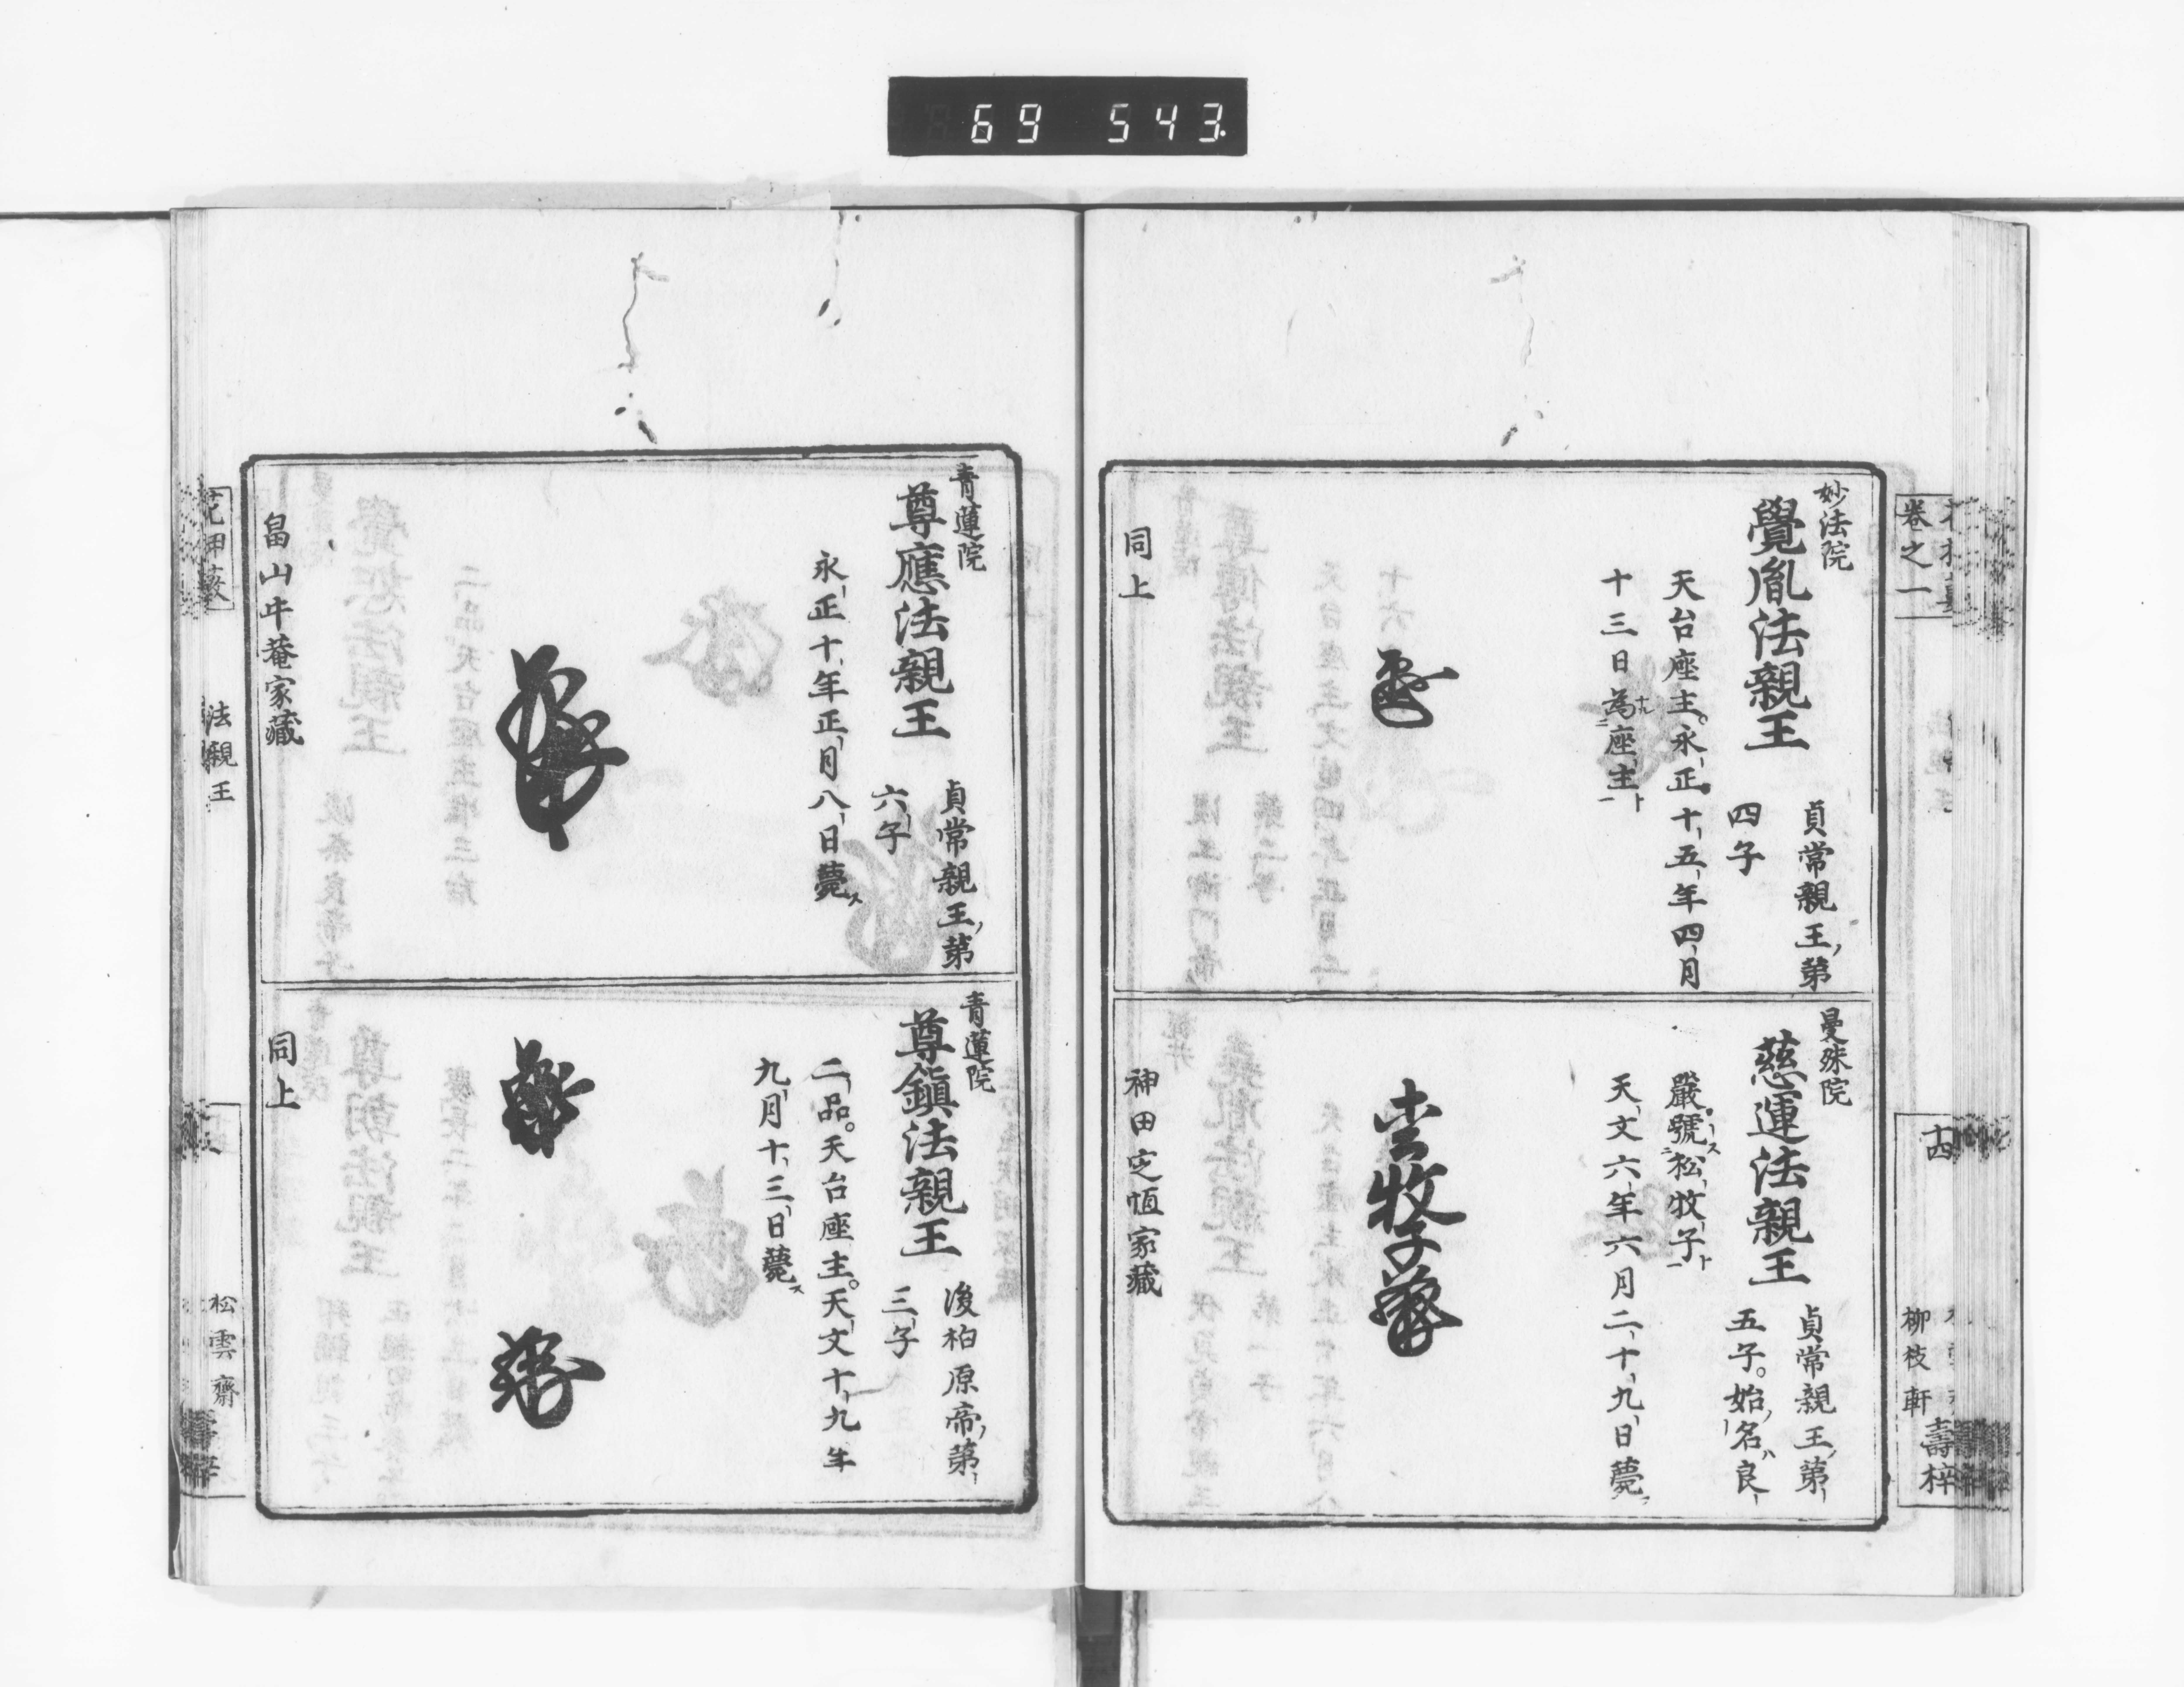 69 543.
卷之一
十四
柳枝軒
壽梓
妙法院
覺胤法親王
貞常親王第
四子
天台座主。永正十五年四月
十三日為座主
同上
曼殊院
慈運法親王
貞常親王第
五子。始名良
嚴號松牧子
天文六年六月二十九日薨
松牧子
神田定恒家藏
青蓮院
尊應法親王
貞常親王第
六子
永正十年正月八日薨ス
畠山牛菴家藏
青蓮院
尊鎭法親王
後柏原帝第
三子
二品。天台座主。天文十九年
九月十三日薨ス
同上
花押藪
法親王
松雲齋